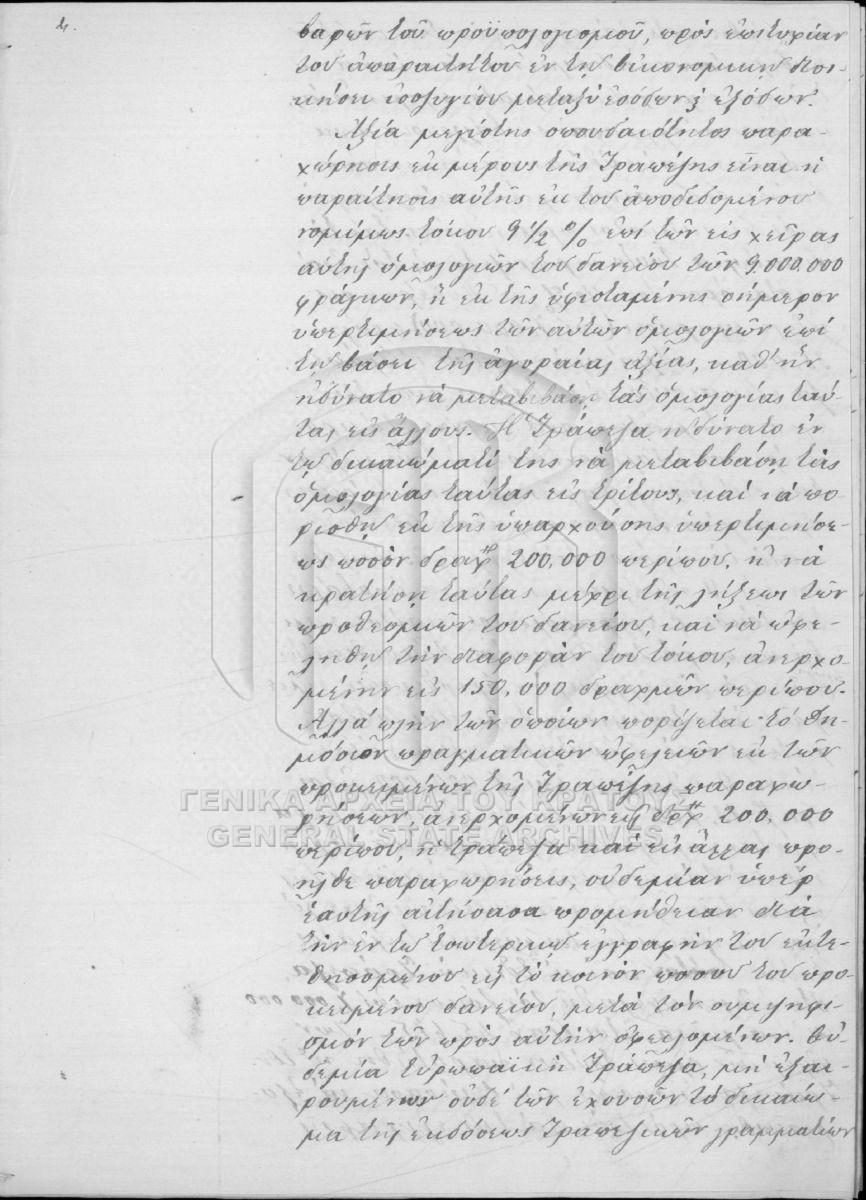 4.
βαρῶν τοῦ προϋπολογισμοῦ, πρὸς ἐπιτυχίαν
του ἀπαραιτήτου ἐν τῇ οἰκονομικῇ διοι-
κήσει ἰσοζυγίου μεταξὺ ἐσόδων & ἐξόδων.
Ἀξία μεγίστης σπουδαιότητος παρα-
χώρησις ἐκ μέρους τῆς Τραπέζης εἶναι ἡ
παραίτησις αὐτῆς ἐκ του ἀποδιδομένου
νομίμως τόκου 9 1/2 % ἐπὶ τῶν εἰς χεῖρας
αὐτῆς ὁμολογιῶν του δανείου τῶν 9.000.000
φράγκων, ἢ ἐκ τῆς ὑφισταμένης σήμερον
ὑπερτιμήσεως τῶν αὐτῶν ὁμολογιῶν ἐπὶ
τῇ βάσει τῆς ἀγοραίας ἀξίας, καθ' ἣν
ἠδύνατο νὰ μεταβιβάσῃ τὰς ὁμολογίας ταύ-
τας εἰς ἄλλους. Ἡ Τράπεζα ἠδύνατο ἐν
τῷ δικαιώματί της νὰ μεταβιβάσῃ τὰς
ὁμολογίας ταύτας εἰς τρίτους, καὶ νὰ πο-
ρισθῇ ἐκ τῆς ὑπαρχούσης ὑπερτιμήσε-
ως ποσὸν δραχ. 200,000 περίπου, ἢ νὰ
κρατήσῃ ταύτας μέχρι τῆς λήξεως τῶν
προθεσμιῶν του δανείου, καὶ νὰ ὠφε-
ληθῇ τὴν διαφορὰν του τόκου, ἀνερχο-
μένην εἰς 150,000 δραχμῶν περίπου.
Ἀλλὰ πλὴν τῶν ὁποίων πορίζεται τὸ Δη-
μόσιον πραγματικῶν ὠφελειῶν ἐκ τῶν
προκειμένων τῆς Τραπέζης παραχω-
ρήσεων, ἀνερχομένων εἰς δρχ 200,000
περίπου, ἡ Τράπεζα καὶ εἰς ἄλλας προ-
ῆλθε παραχωρήσεις, οὐδεμίαν ὑπὲρ
ἑαυτῆς αἰτήσασα προμήθειαν διὰ
τὴν ἐν τῷ ἐσωτερικῷ ἐγγραφὴν του ἐκτε-
θησομένου εἰς τὸ κοινὸν ποσοῦ του προ-
κειμένου δανείου, μετὰ τὸν συμψηφι-
σμὸν τῶν πρὸς αὐτὴν ὀφειλομένων. Οὐ-
δεμία Εὐρωπαϊκὴ Τράπεζα, μὴ ἐξαι-
ρουμένων οὐδὲ τῶν ἐχουσῶν τὸ δικαίω-
μα τῆς ἐκδόσεως Τραπεζικῶν γραμματίων
ΓΕΝΙΚΑ ΑΡΧΕΙΑ ΤΟΥ ΚΡΑΤΟΥΣ
GENERAL STATE ARCHIVES